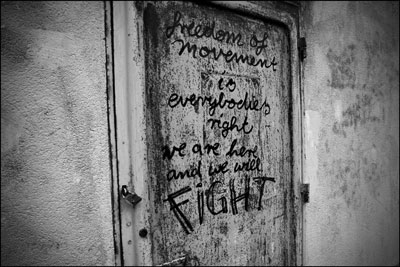 freedom of
movement
is
everybodies
right
we are here
and we will
FIGHT